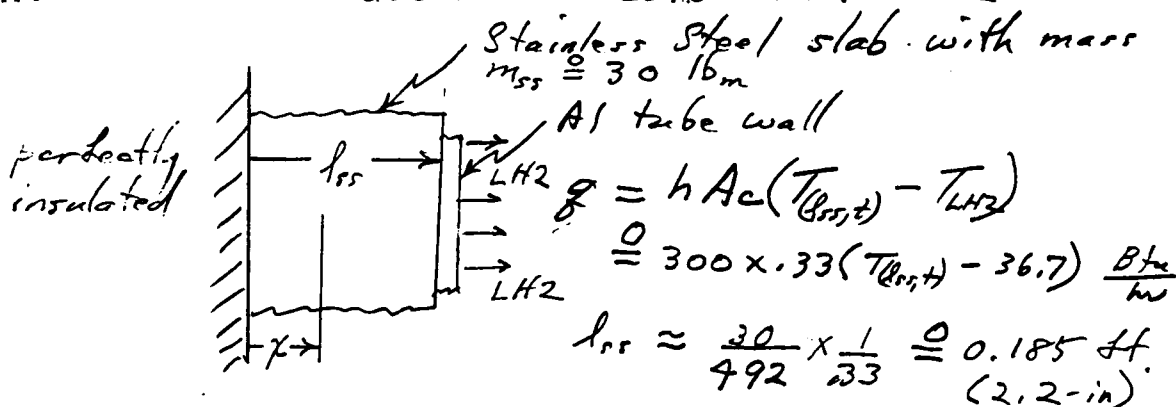 Stainless Steel slab with mass
m_ss ≐ 30 lb_m
Al tube wall
perfectly
insulated
l_ss
LH2
q = h Ac (T(l_ss,t) - T_LH2)
≐ 300 x .33 (T(l_ss,t) - 36.7) Btu/hr
LH2
x
l_ss ≈ 30/492 x 1/.33 ≐ 0.185 ft.
(2.2-in)